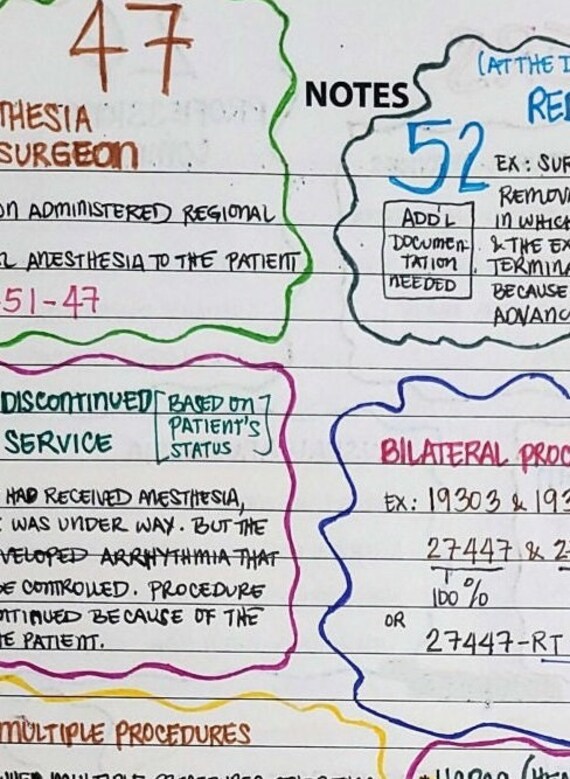 47
THESIA
SURGEON
ON ADMINISTERED REGIONAL
ANESTHESIA TO THE PATIENT
-51-47
NOTES
(AT THE
52
EX: SUR
REMOVA
IN WHICH
& THE EX
TERMINA
BECAUSE
ADVANC
ADD'L
DOCUMEN-
TATION
NEEDED
DISCONTINUED
SERVICE
BASED ON
PATIENT'S
STATUS
HAD RECEIVED ANESTHESIA,
WAS UNDER WAY. BUT THE
VELOPED ARRHYTHMIA THAT
BE CONTROLLED. PROCEDURE
NTINUED BECAUSE OF THE
E PATIENT.
BILATERAL PROC
EX: 19303 & 193
27447 & 2
100%
OR
27447-RT
MULTIPLE PROCEDURES